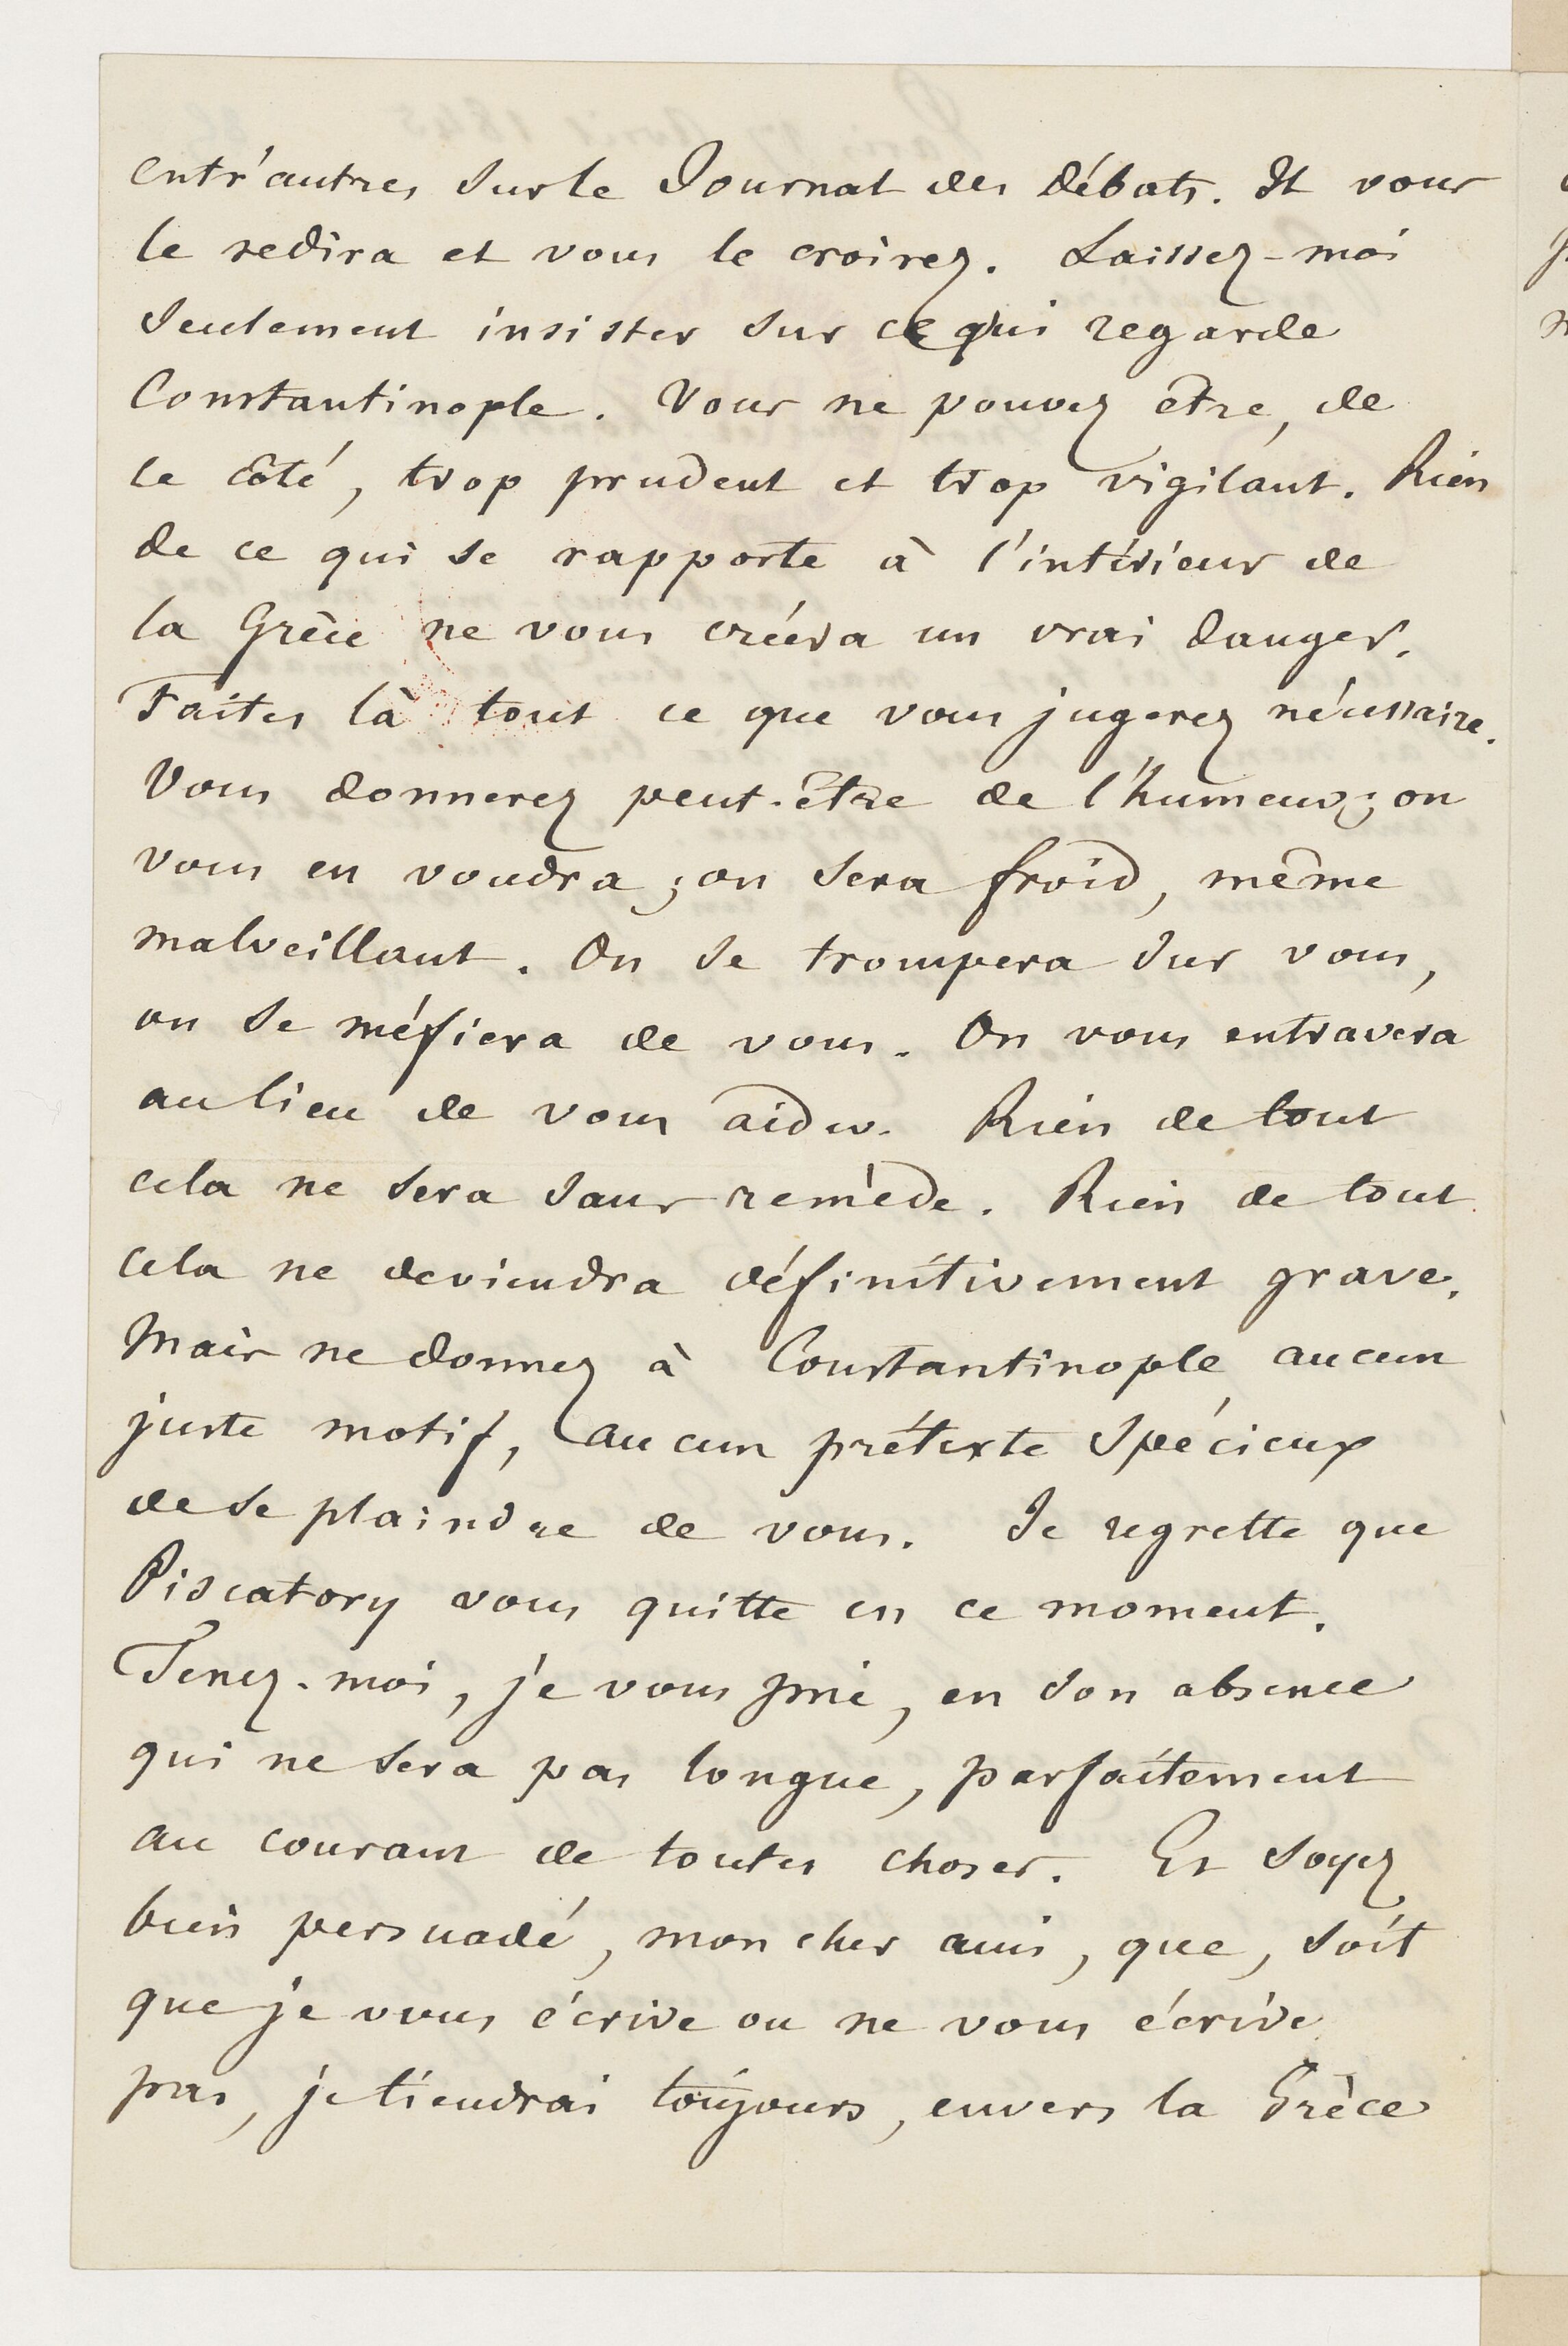 entr'autres sur le Journal des Débats. Il vous
le redira et vous le croirez. Laissez-moi
seulement insister sur ce qui regarde
Constantinople. Vous ne pouvez être, de
ce côté, trop prudent et trop vigilant. Rien
de ce qui se rapporte à l'intérieur de
la Grèce ne vous créera un vrai danger.
Faites là tout ce que vous jugerez nécessaire.
Vous donnerez peut-être de l'humeur ; on
vous en voudra ; on sera froid, même
malveillant. On se trompera sur vous,
on se méfiera de vous. On vous entravera
au lieu de vous aider. Rien de tout
cela ne sera sans remède. Rien de tout
cela ne deviendra définitivement grave.
Mais ne donnez à Constantinople aucun
juste motif, aucun prétexte spécieux
de se plaindre de vous. Je regrette que
Piscatory vous quitte en ce moment.
Tenez-moi, je vous prie, en son absence
qui ne sera pas longue, parfaitement
au courant de toutes choses. Et soyez
bien persuadé, mon cher ami, que, soit
que je vous écrive ou ne vous écrive
pas, je tiendrai toujours, envers la Grèce